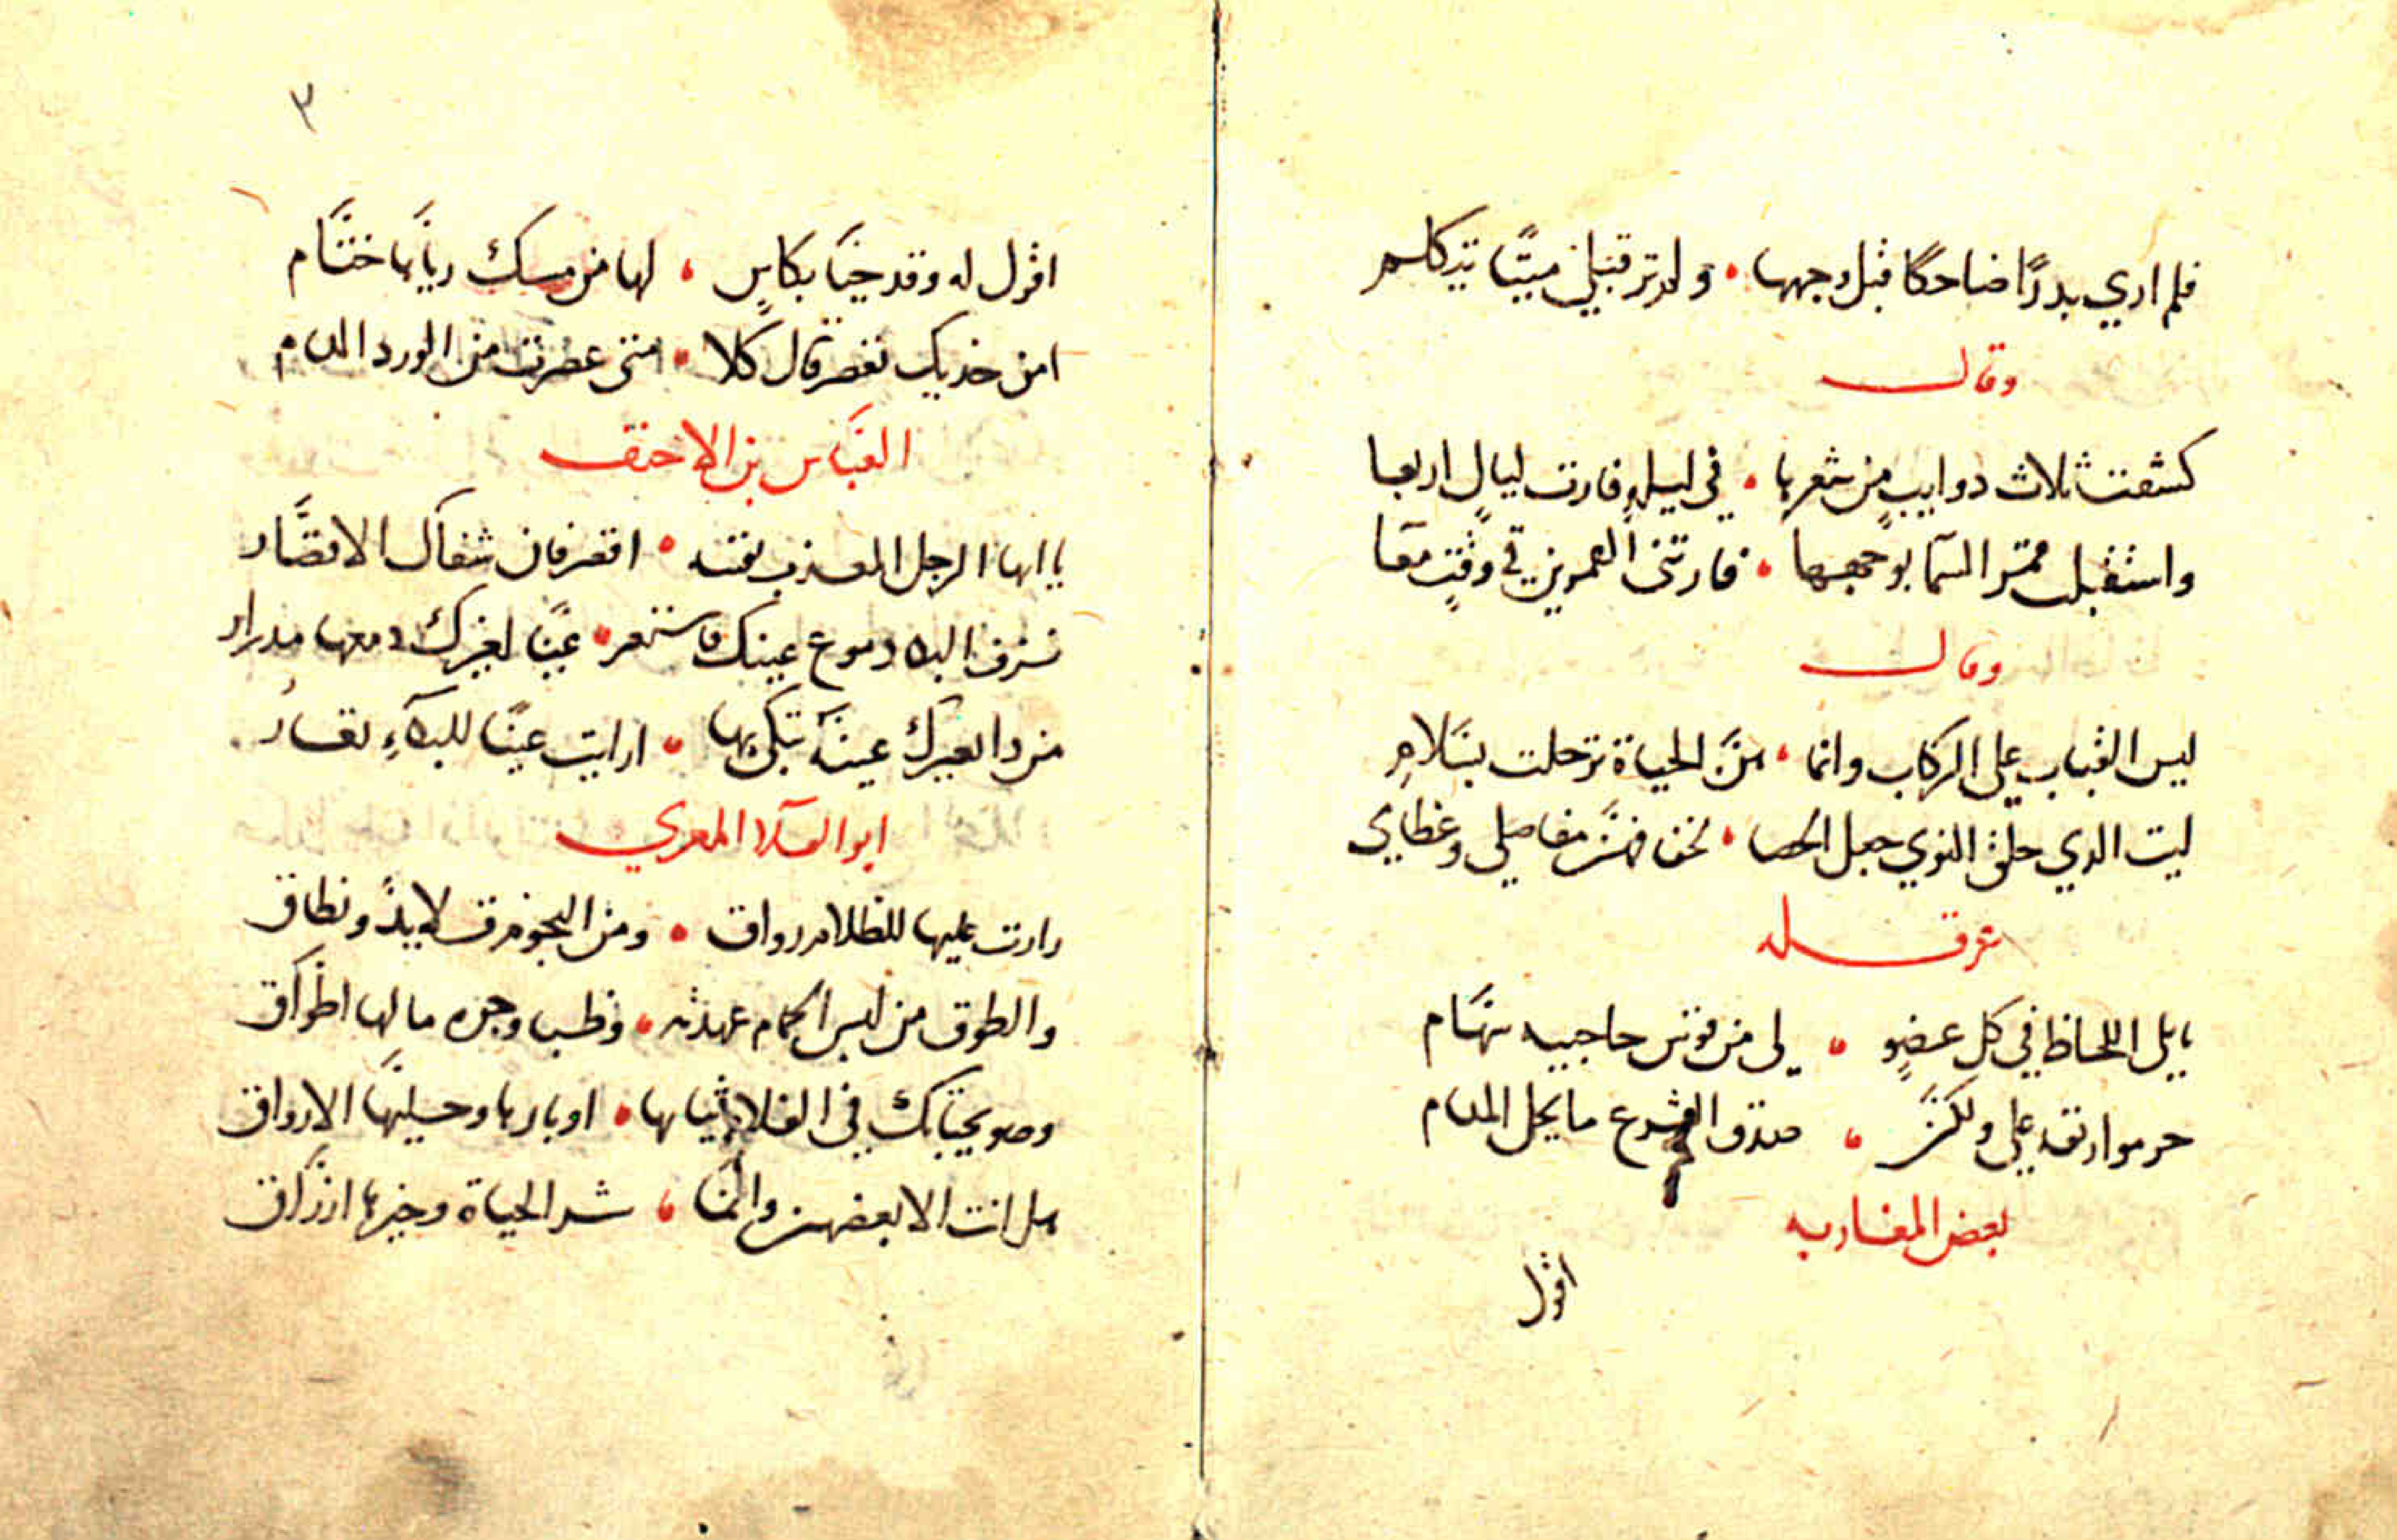 فلم اري بدرًا ضاحكا قبل وجهها • ولم تر قبلي ميتًا يتكلم
وقال
كشفت ثلاث دوايب من شعرها • في ليلةٍ فارت ليالٍ اربعا
واستقبلت قمر السما بوجهها • فارتني القمرين في وقتٍ معًا
وقال
ليس القباب على الركاب وانما • هنّ الحياة ترحلت بسلام
ليت الدي خلق النوي جعل الحصا • لخفافهنّ مفاصلي وعظامي
عرقله
بابلي اللحاظ في كل عضوٍ • لي من قوس حاجبيه سهام
حرموا ريقه علي ولكن • صدق الشرع ما يحل المدام
بعض المغاربه
اقول
٣
اقول له وقد حيّا بكاسٍ • لها من مسك رياها ختام
امن خديك تعصر قال كلا • متى عصرت من الورد المدام
العباس بن الاحنف
يا ايها الرجل المعذب نفسه • اقصر فان شفاك الاقصار
نزف البكا دموع عينك فاستعر • عينًا لغيرك دمعها مدرار
من دا يعيرك عينه تبكي بها • ارايت عينًا للبكآءِ تعار
ابو العلا المعري
رارت عليها للظلام رواق • ومن النجوم قلايد ونطاق
والطوق من لبس الحمام عهدته • وظبا وجره ما لها اطواق
وصويحباتك في الفلاة ثيابها • اوبارها وحليها الارواق
هل انت الا بعضهن وانما • شر الحياة وخيرها ارزاق